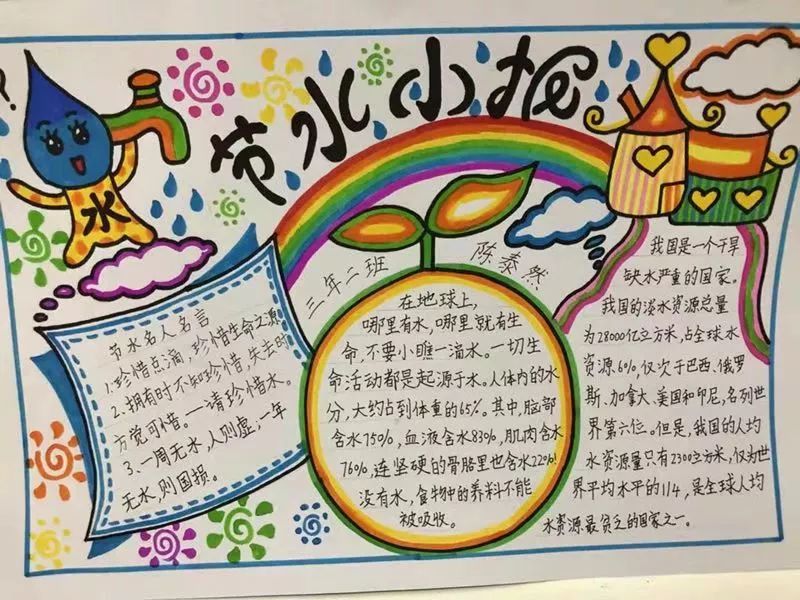 节水小报
水
三年二班
陈泰然
节水名人名言
1.珍惜点滴,珍惜生命之源
2.拥有时不知珍惜,失去时
方觉可惜。一请珍惜水。
3.一周无水,人则虚,一年
无水,则国损。
在地球上,
哪里有水,哪里就有生
命,不要小瞧一滴水。一切生
命活动都是起源于水。人体内的水
分,大约占到体重的65%。其中,脑部
含水750%,血液含水83%,肌肉含水
76%,连坚硬的骨胳里也含水22%!
没有水,食物中的养料不能
被吸收。
我国是一个干旱
缺水严重的国家。
我国的淡水资源总量
为28000亿立方米,占全球水
资源6%,仅次于巴西、俄罗
斯、加拿大、美国和印尼,名列世
界第六位。但是,我国的人均
水资源量只有2300立方米,仅为世
界平均水平的1/4,是全球人均
水资源最贫乏的国家之一。